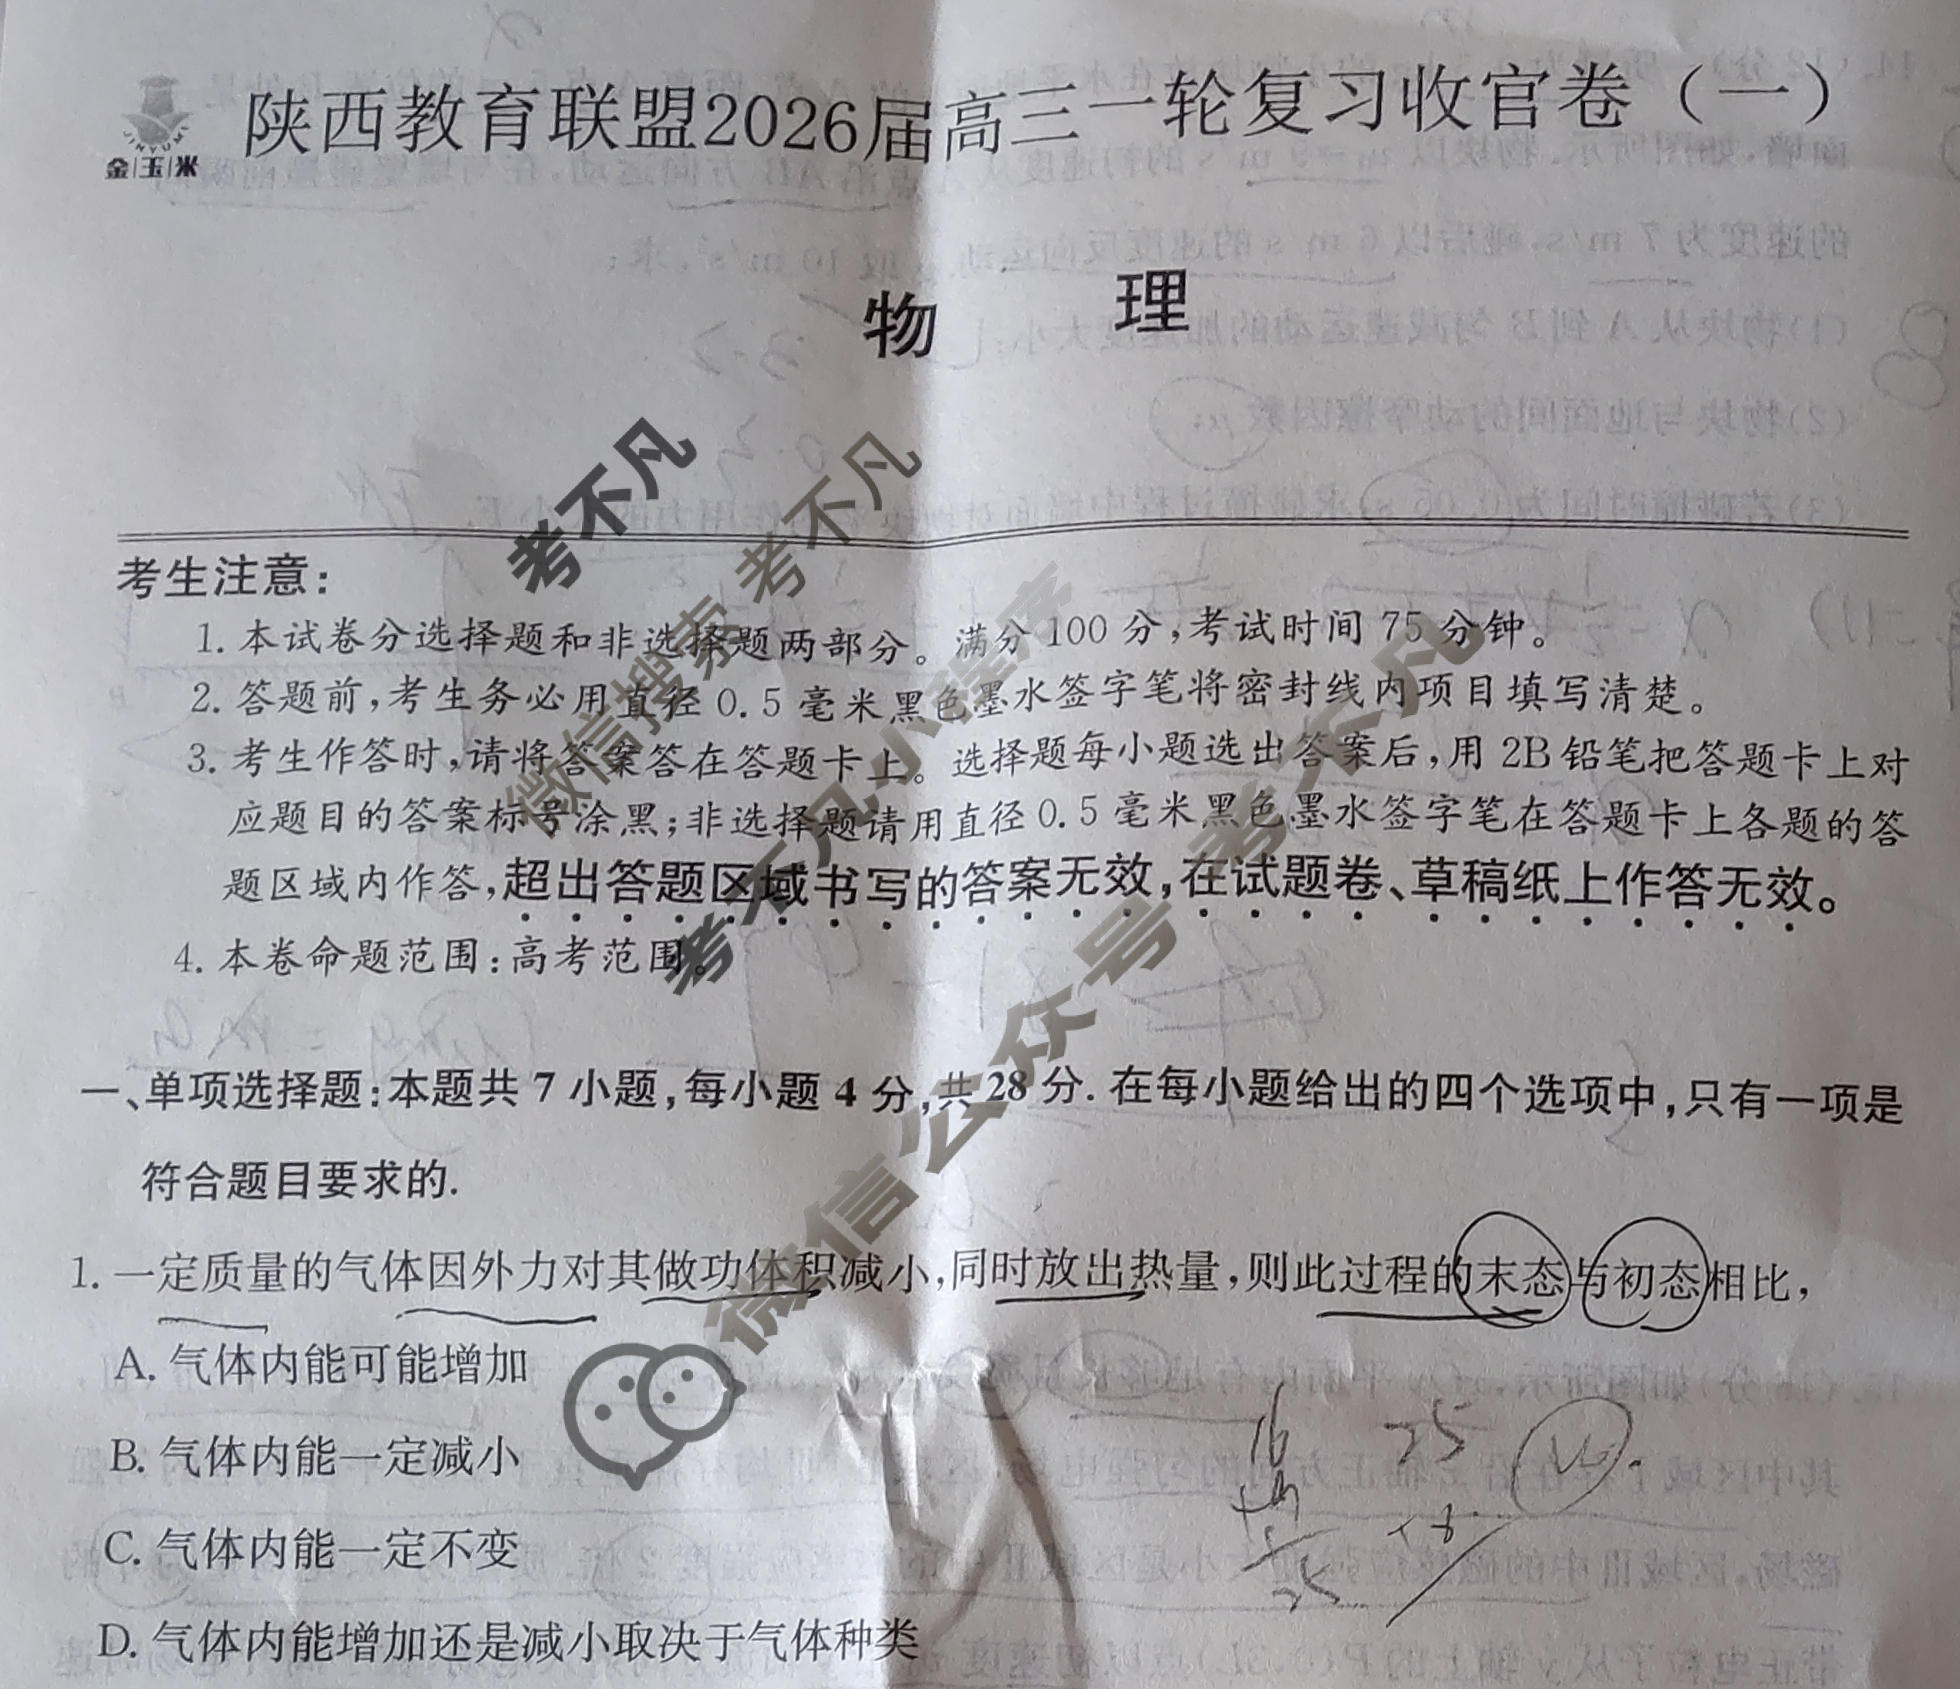 JINYUMI
金|玉|米
陕西教育联盟2026届高三一轮复习收官卷（一）
物 理
考生注意：
1. 本试卷分选择题和非选择题两部分。满分 100 分，考试时间 75 分钟。
2. 答题前，考生务必用直径 0.5 毫米黑色墨水签字笔将密封线内项目填写清楚。
3. 考生作答时，请将答案答在答题卡上。选择题每小题选出答案后，用 2B 铅笔把答题卡上对
应题目的答案标号涂黑；非选择题请用直径 0.5 毫米黑色墨水签字笔在答题卡上各题的答
题区域内作答，超出答题区域书写的答案无效，在试题卷、草稿纸上作答无效。
4. 本卷命题范围：高考范围。
一、单项选择题：本题共 7 小题，每小题 4 分，共 28 分. 在每小题给出的四个选项中，只有一项是
符合题目要求的.
1. 一定质量的气体因外力对其做功体积减小，同时放出热量，则此过程的末态与初态相比，
A. 气体内能可能增加
B. 气体内能一定减小
C. 气体内能一定不变
D. 气体内能增加还是减小取决于气体种类
考不凡
微信搜索 考不凡
考不凡小程序
微信公众号 考不凡
16
25
25